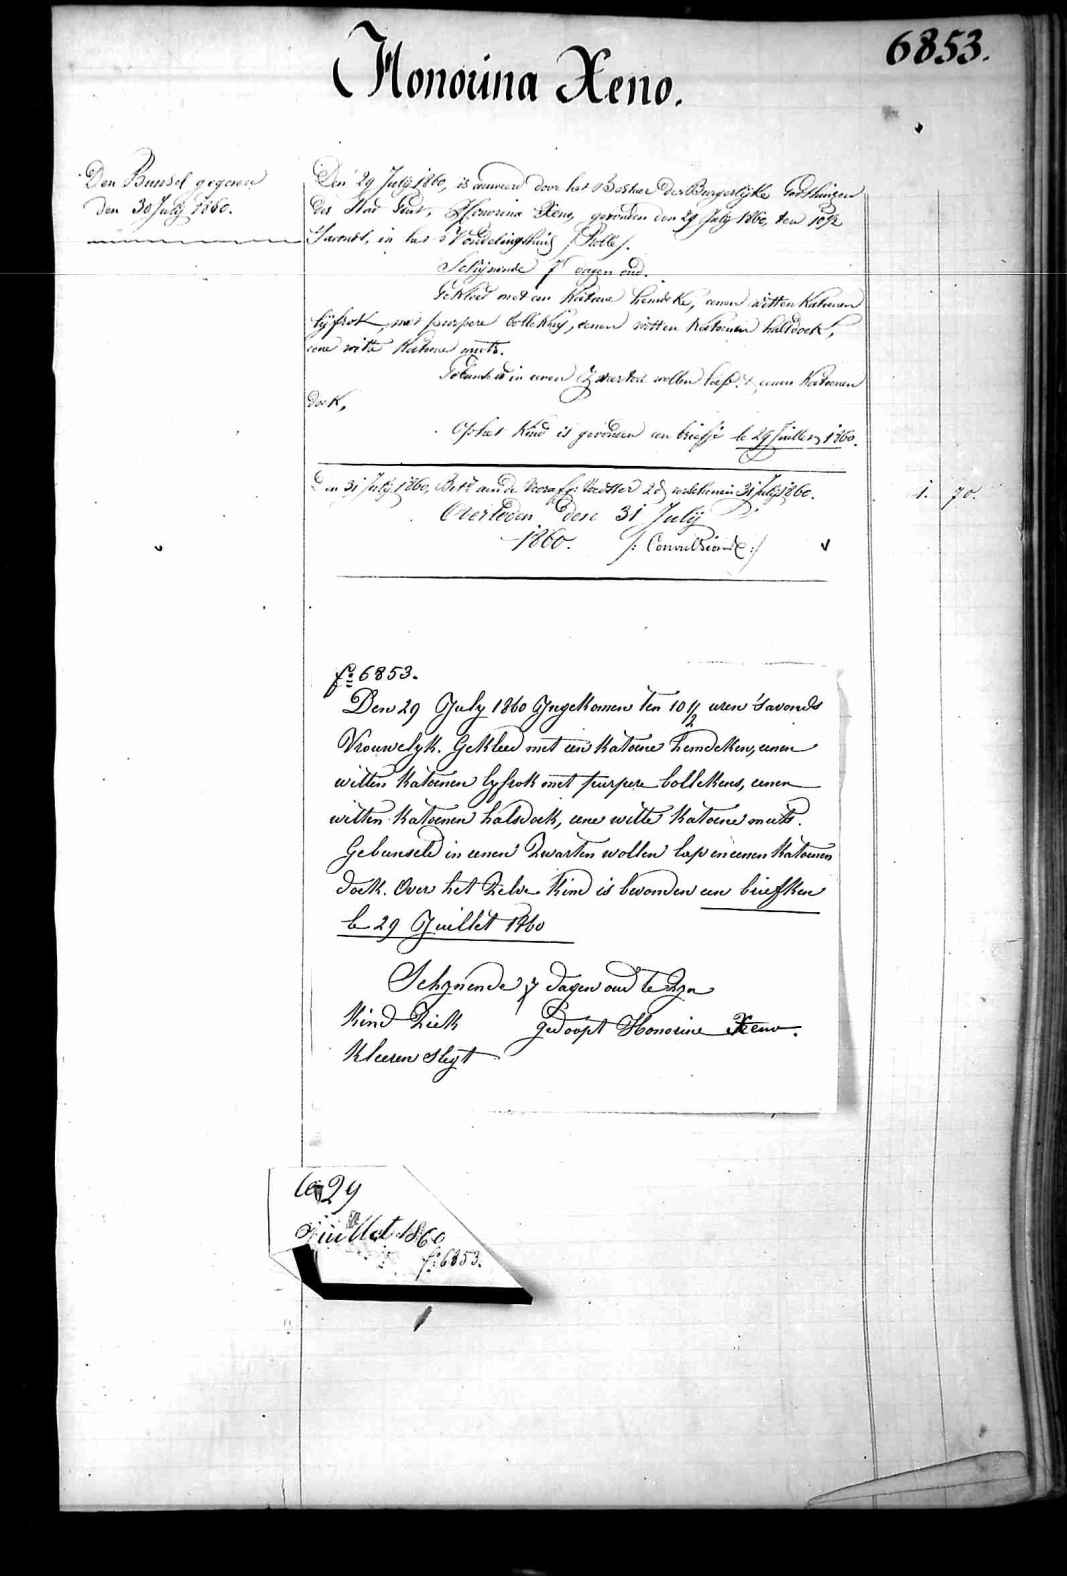 Honorina Xeno.
6853.
Den Bunsel gegeven
den 30 July 1860.
Den 29 July 1860, is aenveerd door het Bestier der Burgerlyke Godshuizen
der Stad Gent, Honorina Xeno, gevonden den 29 July 1860, ten 10 1/2
s'avonds, in het Vondelingshuis /:Rolle:/.
Schijnende 7 dagen oud.
Gekleed met een katoene hemdeke, eenen witten katoenen
lyfrok met purpere bollekens, eenen witten katoenen halsdoek,
eene witte katoene muts.
Gebunseld in eenen zwarten wollen lap & eenen katoenen
doek,
Op het kind is gevonden een briefje le 29 Juillet 1860.
Den 31 July 1860, Bet. aen de Voedster 2 d verschenen 31 July 1860.
1. 70.
Overleden den 31 July
1860. /: Convulsions :/
fo 6853.
Den 29 July 1860 Ingekomen ten 10 1/2 uren 's avonds
Vrouwelyk. Gekleed met een katoene hemdeken, eenen
witten katoenen lyfrok met purpere bollekens, eenen
witten katoenen halsdoek, eene witte katoene muts.
Gebunseld in eenen zwarten wollen lap en eenen katoenen
doek. Over het zelve kind is bevonden een briefken
le 29 Juillet 1860
Schynende 7 dagen oud te zyn
Kind Ziek gedoopt Honorine Xeno.
Kleeren slegt
le 29
Juillet 1860
fo 6853.